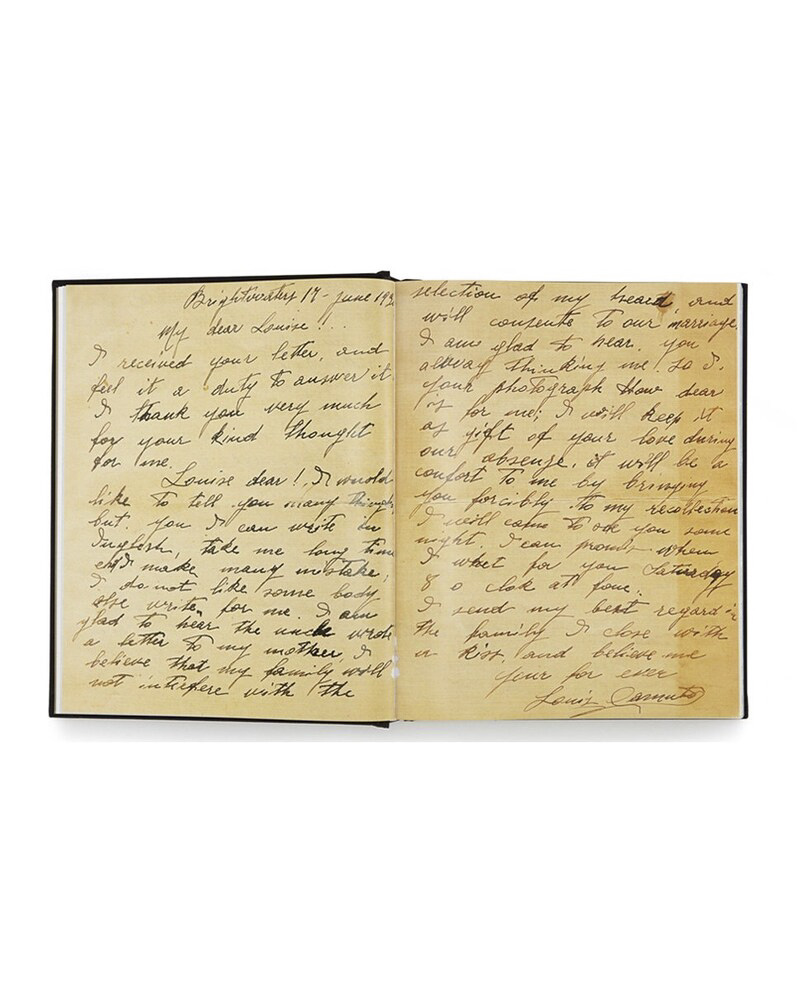 Brightwaters 17 - June 192
My dear Louise!..
I received your letter, and
feel it a duty to answer it.
I thank you very much
for your kind thought
for me.
Louise dear! I would
like to tell you many things
but you I can write in
Inglesh, take me long time
I make many mistake,
I do not like some body
else write for me. I am
glad to hear the uncle wrote
a letter to my mother, I
believe that my family will
not intefere with the
selection of my heart and
will consente to our marriage,
I am glad to hear you
alway thinking me. So I.
your photograph How dear
is for me; I will keep it
as gift of your love during
our absense, it will be a
confort to me by bringing
you forcibly to my recollection
I will came to you some
night. I can promis when
I for you Saturday
8 o clok at four..
I send my best regard in
the family I close with
a kiss and believe me
your for ever
Louis Camuto